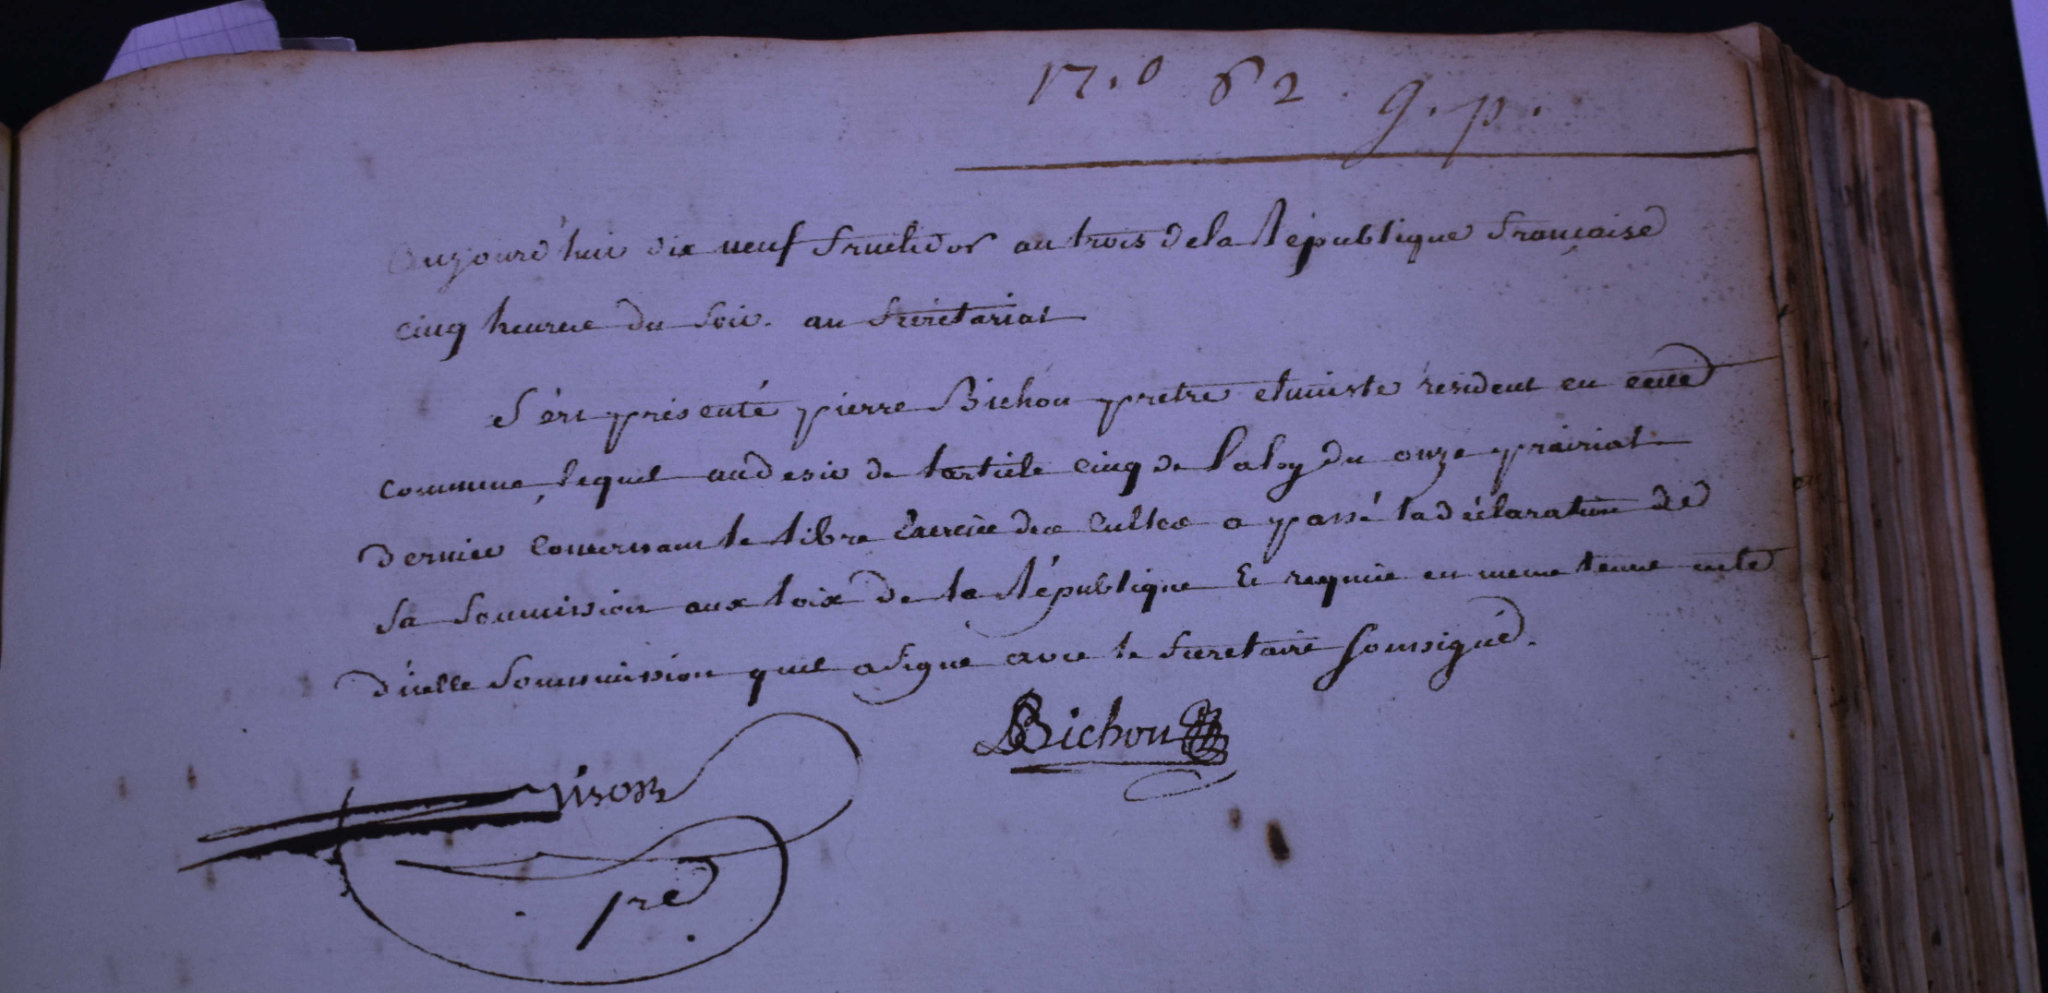 n.o 62 g. p.
Aujourd'hui dix neuf fructidor an trois de la République française
cinq heures du soir. au secrétariat
s'est présenté pierre Bichon pretre resident en cette
commune, lequel au desir de l'article cinq de la loy du onze prairial
dernier concernant le libre exercice des cultes a passé la déclaration de
sa soumission aux loix de la République et requis en meme tems acte
d'icelle soummission qu'il a signé avec le secretaire soussigné.
Bichon
pre